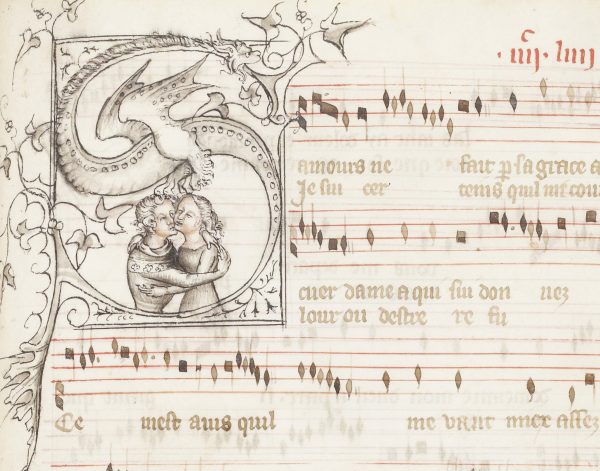 amours ne fait p sa grace a
Je sui cer teins quil me cou
cuer dame a qui sui don nez
lour ou re fu
Ce mest auis quil me vaut miex assez